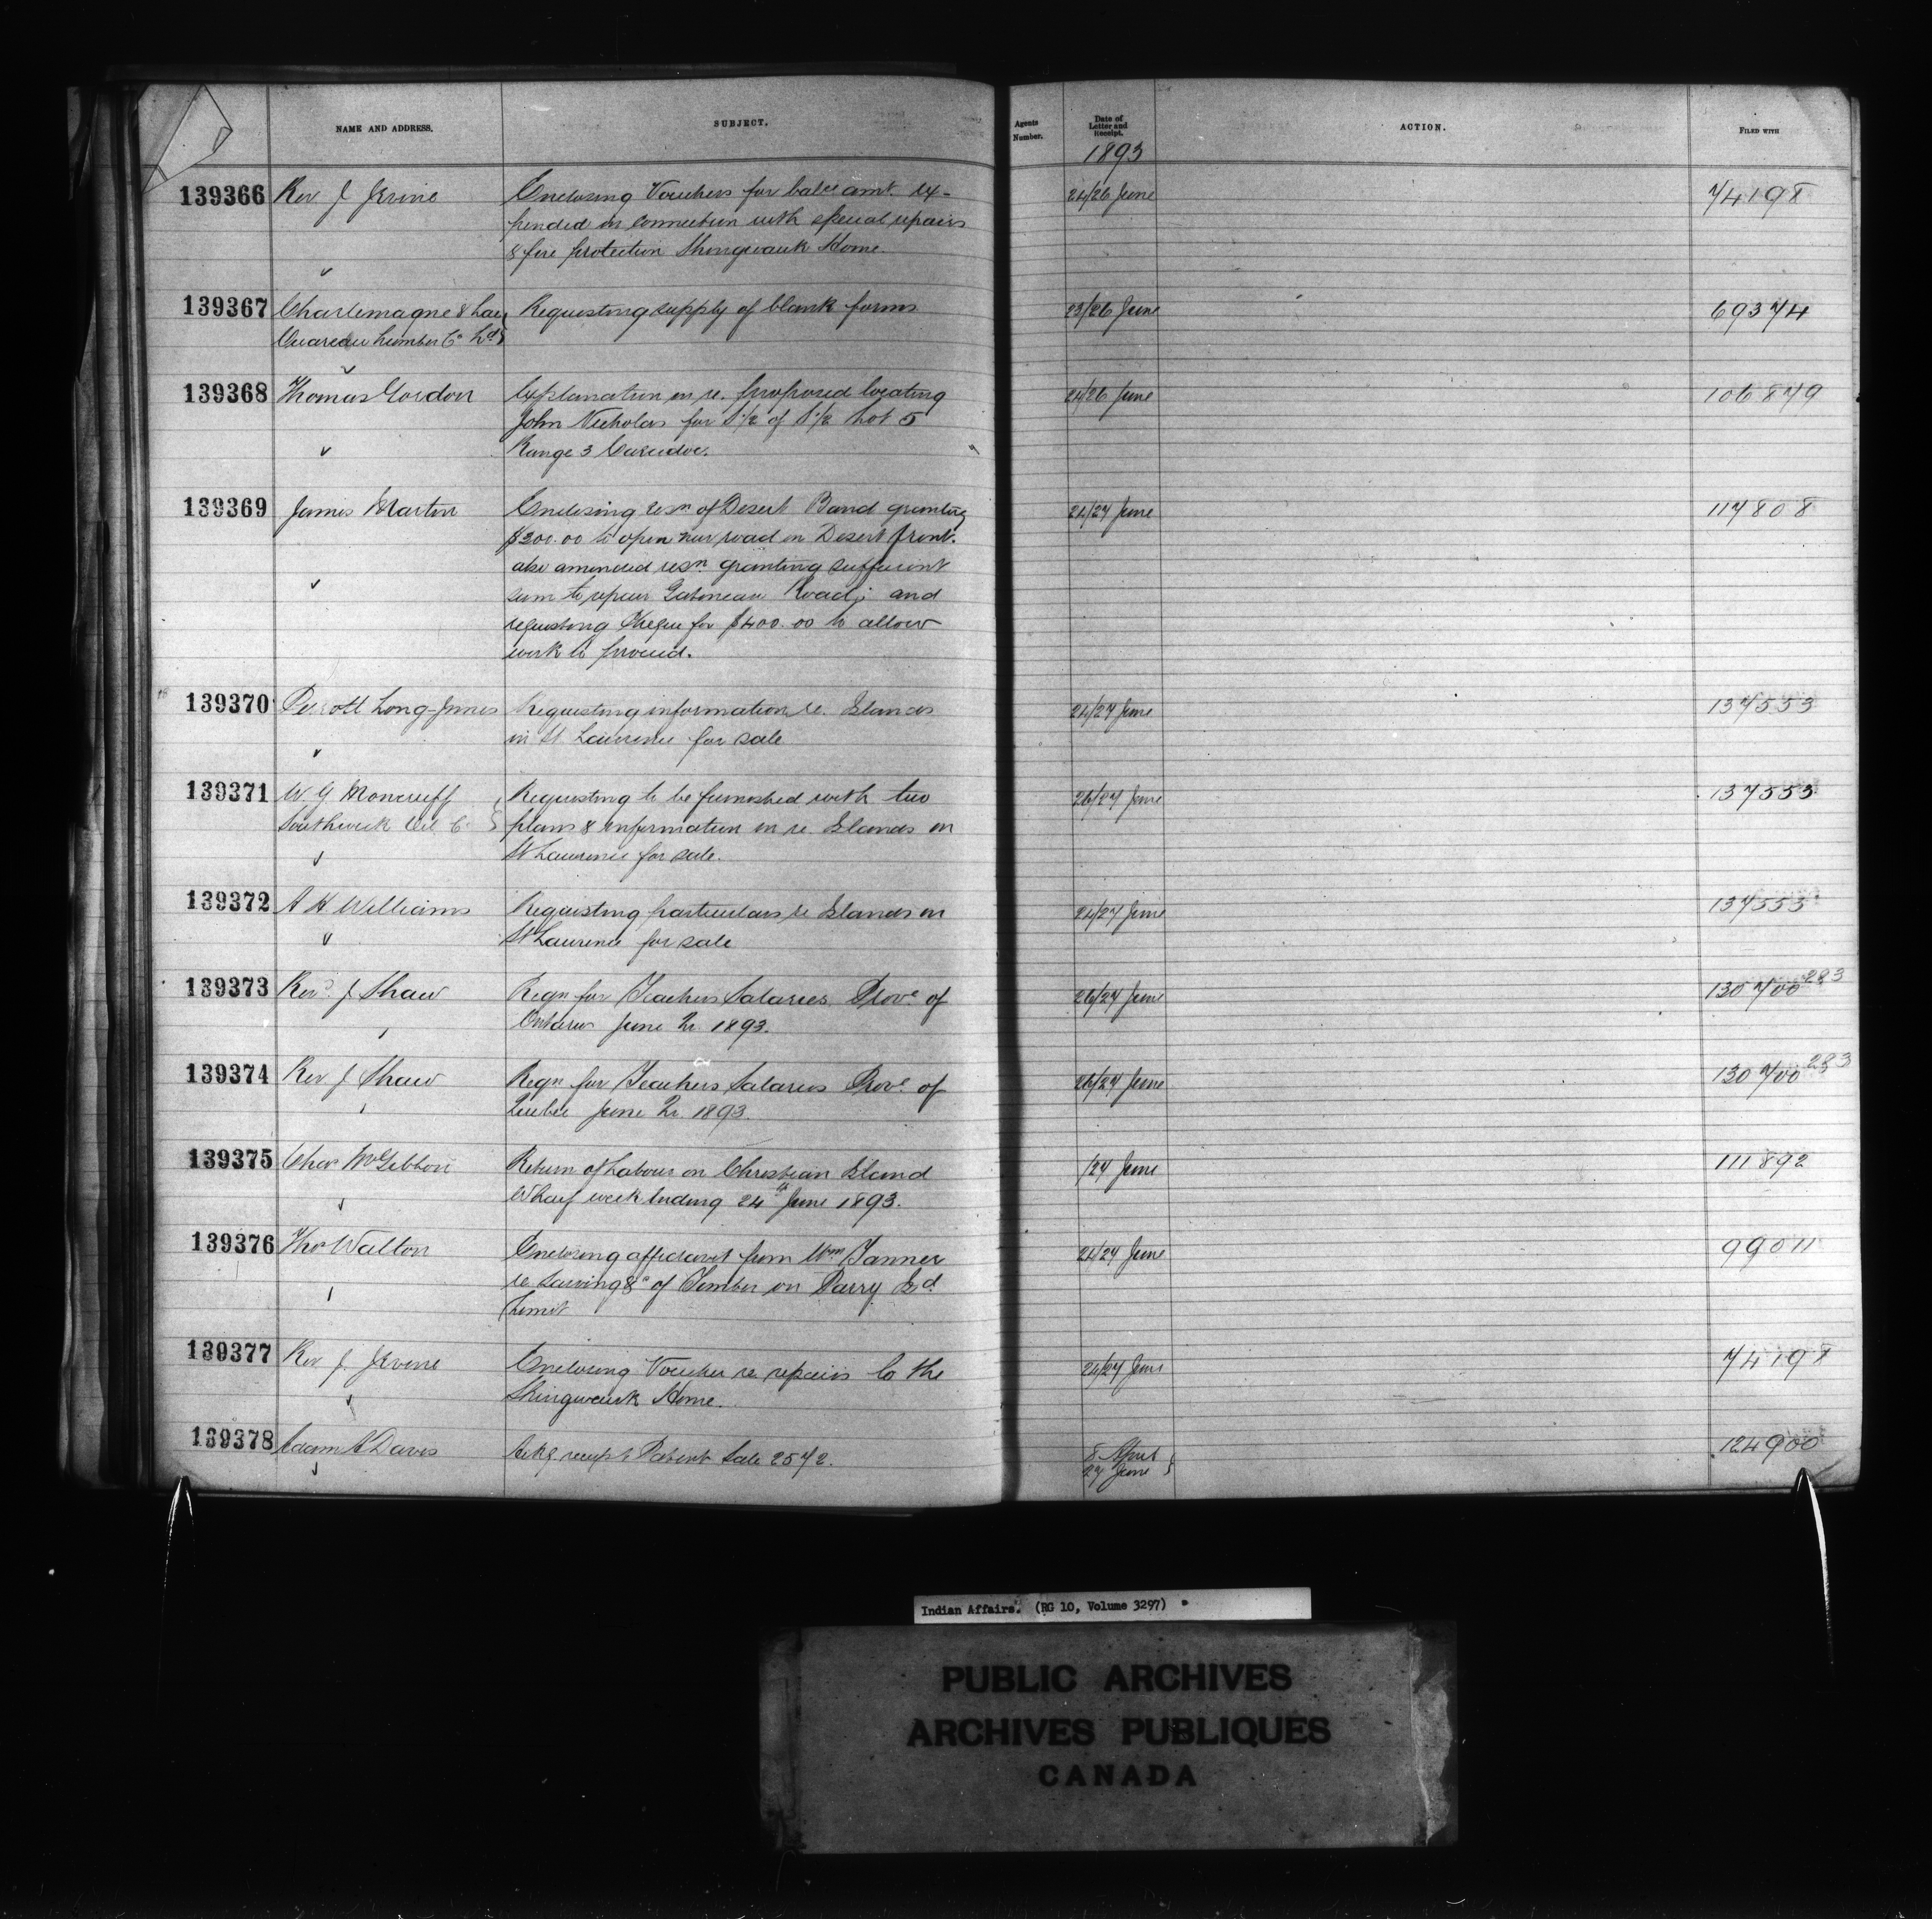 NAME AND ADDRESS.
SUBJECT.
Agents Number.
Date of Letter and Receipt.
ACTION.
FILED WITH
1893
139366 Rev J Irvine Enclosing Vouchers for balce amt. ex- 24/26 June 74198
pended in connection with special repairs
& fire protection Shingwauk Home.
139367 Charlemagne & Lac Requesting supply of blank forms 23/26 June 69374
Ouareau Lumber Co Ld
139368 Thomas Gordon Explanation in re. proposed locating 24/26 June 106879
John Nicholas for S½ of S½ Lot 5
Range 3 Caradoc.
139369 James Martin Enclosing resn of Desert Band granting 24/27 June 117808
$200.00 to open new road on Desert front.
also amended resn. granting sufficient
sum to repair Gatineau Road; and
requesting Cheque for $400.00 to allow
work to proceed.
139370 Perrott Long-Innes Requesting information re. Islands 24/27 June 137553
in St Lawrence for sale
139371 W. G Moncrieff Requesting to be furnished with two 26/27 June 137553
Southwick Oil Co plans & information in re. Islands in
St Lawrence for sale.
139372 A H Williams Requesting particulars re Islands in 24/27 June 137553
St Lawrence for sale
139373 Revd. J Shaw Reqn for Teachers Salaries Prove of 26/27 June 130700 283
Ontario June Qr 1893.
139374 Rev J Shaw Reqn for Teachers Salaries Prove of 26/27 June 130700 283
Quebec June Qr. 1893.
139375 Chas McGibbon Return of Labour on Christian Island /27 June 111892
Wharf week ending 24th June 1893.
139376 Thos Walton Enclosing affidavit from Wm Tanner 24/27 June 99011
re Sawing &c of Timber on Parry Isd
Limit
139377 Rev J. Irvine Enclosing Voucher re repairs to the 24/27 June 74198
Shingwauk Home.
139378 Adam A Davis Ackg receipt Patent Sale 2572. 8 April 124900
27 June
Indian Affairs. (RG 10, Volume 3297)
PUBLIC ARCHIVES
ARCHIVES PUBLIQUES
CANADA